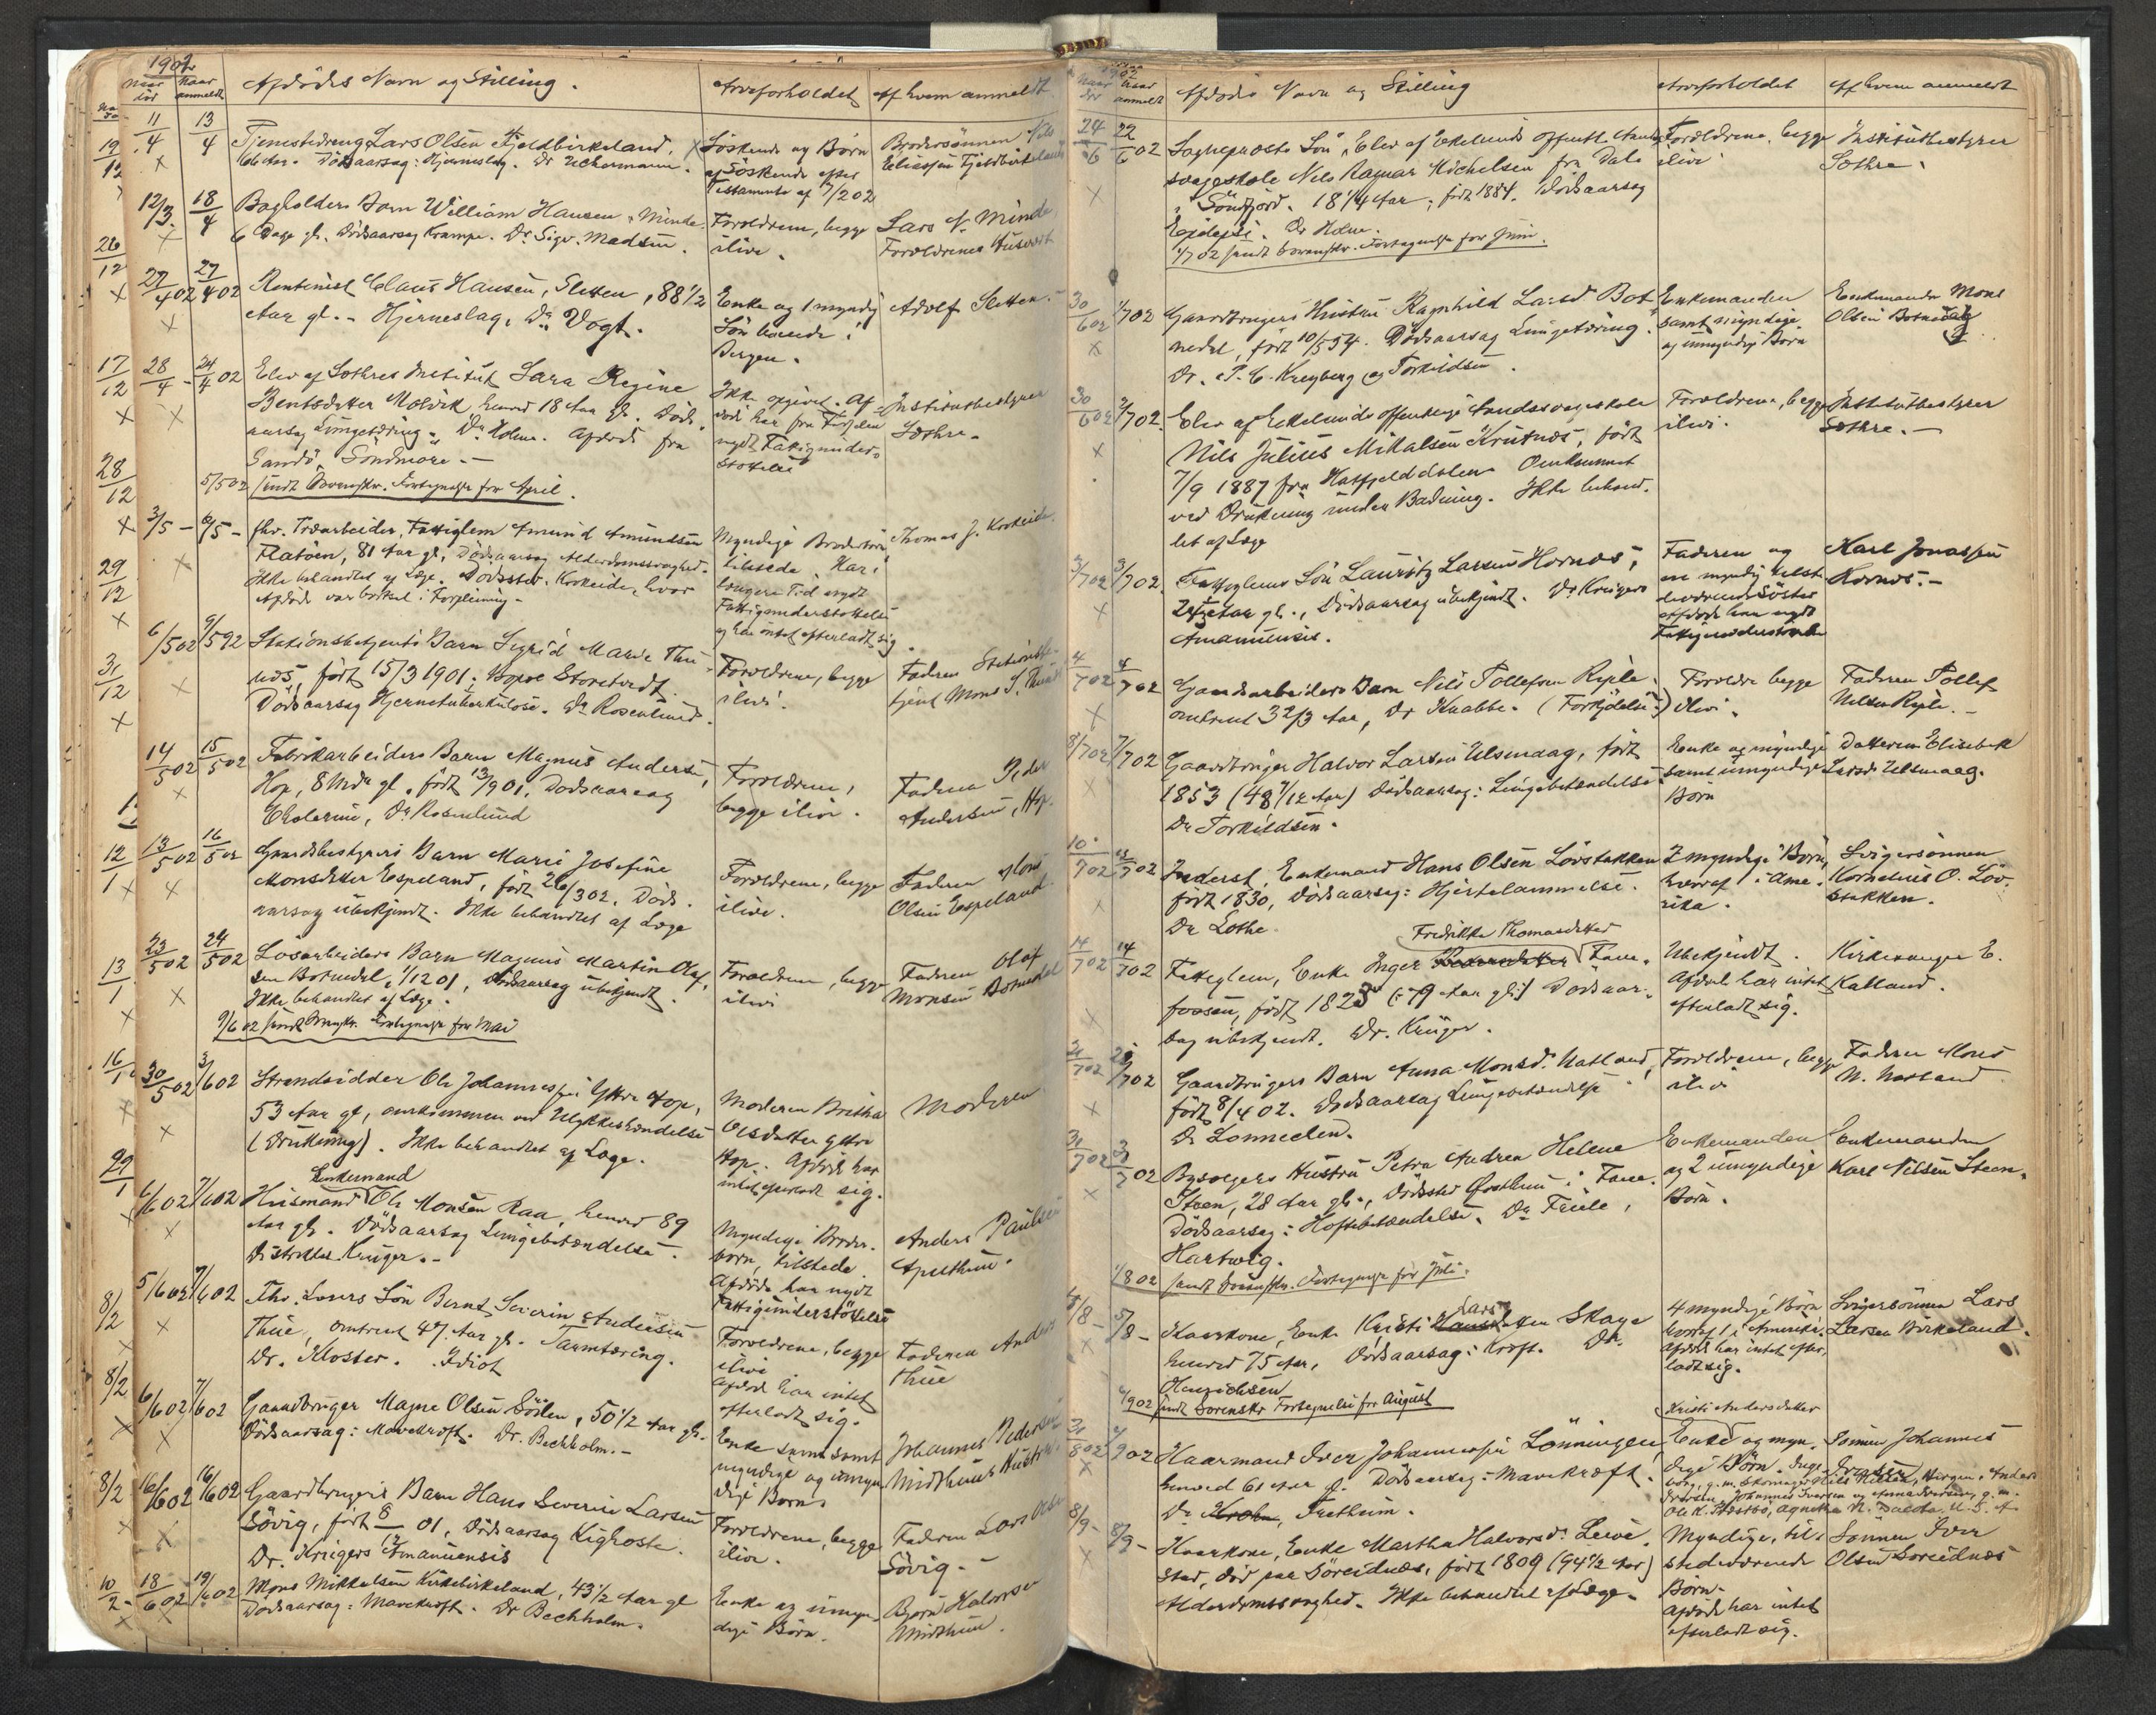 1902
Naar død
Naar anmeldt
Afdødes Navn og Stilling.
Arveforholdet
Af hvem anmeldt
11/4 13/4 Tjenestedreng Lars Olsen Fjeldbirkeland,
66 Aar. Dødsaarsag: Hjerneslag. Dr Uchermann.
Søskende og Børn
af Søskende efter
Testamente af 7/2 02
Brodersønnen Nils
Eliassen Fjeldbirkeland
12/3 18/4 Bogholders Barn William Hansen, Minde.
6 Dage gl. Dødsaarsag Krampe. Dr Sigv. Madsen.
Forældrene, begge
ilive.
Lars N. Minde,
Forældrenes Husvert
27/4 02 27/4 02 Rentenist Claus Hansen, Sletten, 88 1/2
Aar gl. - Hjerneslag. Dr. Vogt.
Enke og 1 myndig
Søn boende i
Bergen.
Adolf Sletten.
28/4 - 29/4 02 Elev af Sæthres Institut Sara Regine
Bentsdatter Molvik henved 18 Aar gl. Døds-
aarsag Lungetæring. Dr Holm. Afdøde fra
Sandø, Søndmøre. -
Ikke opgivet. Af-
døde har fra
nydt Fattigunder-
støttelse
Institutbestyrer
Sæthre. -
5/5 02 sendt Sorenskr. Fortegnelse for April.
3/5 - 6/5 - fhv. Træarbeider, Fattiglem Amund Amundsen
Flatøen, 81 Aar gl. Dødsaarsag Alderdomssvaghed.
Ikke behandlet af Læge. Dødssted: Krokeide, hvor
Afdøde var bortsat i Forpleining. -
Myndige Broderbørn
tilstede. Har i
længere Tid nydt
Fattigunderstøttelse
og har intet efterladt sig.
Thomas J. Krokeide
6/5 02 9/5 92 Stationsbetjents Barn Sigrid Marie Thu-
næs, født 15/3 1901. Bopæl Storetvedt.
Dødsaarsag Hjernetuberkulose. Dr Rosenlund.
Forældrene, begge
ilive.
Faderen Stationsbe-
tjent Mons S. Thunæs
14/5 02 15/5 02 Fabrikarbeiders Barn Magnus Andersen,
Hop, 8 Mdr gl. født 13/9 01. Dødsaarsag
Cholerine, Dr Rosenlund
Forældrene,
begge ilive.
Faderen Peder
Andersen, Hop.
13/5 02 16/5 02 Gaardsbestyrers Barn Marie Josefine
Monsdatter Espeland, født 26/3 02. Døds-
aarsag ubekjendt. Ikke behandlet af Læge
Forældrene, begge
ilive.
Faderen Mons
Olsen Espeland.
23/5 02 24/5 02 Løsarbeiders Barn Magnus Martin Olaf-
sen Botnedel, 1/12 01, Dødsaarsag ubekjendt.
Ikke behandlet af Læge.
Forældrene, begge
ilive
Faderen Olaf
Monsen Botnedal
9/6 02 sendt Sorenskr. Fortegnelse for Mai
30/5 02 3/6 02 Strandsidder Ole Johannessen Ytre Hop,
53 Aar gl, omkommen ved Ulykkeshændelse
(Drukning). Ikke behandlet af Læge.
Moderen Britha
Olsdatter Ytre
Hop. Afdøde har
intet efterladt sig.
Moderen
Enkemand
6/6 02 7/6 02 Husmand Ole Monsen Raa, henved 89
Aar gl. Dødsaarsag Lungebetændelse.
Distriktsl. Krüger. -
Myndige Broder-
børn, tilstede
Afdøde har nydt
Fattigunderstøttelse
Anders Paulsen
Apelthun.
5/6 02 7/6 02 Fhv. Losers Søn Bernt Severin Andersen
Thue, omtrent 47 Aar gl. Tarmtæring.
Dr. Kloster. Idiot
Forældrene, begge
ilive
Afdøde har intet
efterladt sig.
Faderen Anders
Thue
6/6 02 7/6 02 Gaardbruger Magne Olsen Sørlen, 50 1/2 Aar gl.
Dødsaarsag: Mavekræft. Dr. Bechholm. -
Enke samt
myndige og umyn-
dige Børn.
Johannes Pedersen
Midthuns Hustru
16/6 02 16/6 02 Gaardbrugers Barn Hans Severin Larsen
Søvig, født 8/12 01. Dødsaarsag Kighoste.
Dr. Krügers Amanuensis
Forældrene, begge
ilive.
Faderen Lars Olsen
Søvig. -
18/6 02 19/6 02 Mons Mikkelsen Kirkebirkeland, 43 1/2 Aar gl
Dødsaarsag: Mavekræft. Dr Bechholm.
Enke og umyn-
dige Børn.
Bjørn Halvorsen
Midthun.
1902
Naar død
Naar anmeldt
Afdødes Navn og Stilling
Arveforholdet
Af hvem anmeldt
24/6 22/6 02 Sognepræsts Søn, Elev af Ekelunds offentl. Aands-
svageskole Nils Ragnar Michelsen fra Dale
i Søndfjord. 18 1/4 Aar, født 1884. Dødsaarsag
Epilepsi. Dr Holm.
Forældrene, begge
ilive
Institutbestyrer
Sæthre.
1/7 02 sendt Sorenskr. Fortegnelse for Juni.
30/6 02 1/7 02 Gaardbrugers Hustru Ragnhild Larsd Bot-
nedel, født 10/5 54. Dødsaarsag Lungetæring.
Dr. P. C. Kreyberg og Torkildsen.
Enkemanden
samt myndige
og umyndige Børn
Enkemanden Mons
Olsen Botnedal
30/6 02 2/7 02. Elev af Ekelunds offentlige Aandssvageskole
Nils Julius Mikalsen Krutnæs, født
7/9 1887 fra Hatfjelddalen. Omkommet
ved Drukning under Badning. Ikke behand-
let af Læge
Forældrene, begge
ilive.
Institutbestyrer
Sæthre. -
3/7 02 3/7 02. Fattiglems Søn Lauritz Larsen Hornæs,
Aar gl., Dødsaarsag ubekjendt. Dr Krügers
Amanuensis.
Faderen og
en myndig tilste-
deværende Søster
Afdøde har nydt
Fattigunderstøttelse
Karl Jonassen
Hornæs. -
4/7 02 4/7 02 Gaardarbeiders Barn Nils Tollefsen Riple.
omtrent 3 2/3 Aar, Dr Knabbe. (Forkjølelse)
Forældre begge
ilive.
Faderen Tollef
Nilsen Riple. -
8/7 02 7/7 02 Gaardbruger Halvor Larsen Ulsmaag, født
1853 (48 7/12 Aar) Dødsaarsag: Lungebetændelse
Dr Torkildsen.
Enke og myndige
samt umyndige
Børn
Datteren Elisabet
Larsd Ulsmaag.
10/7 02 12/7 02 Inderst, Enkemand Hans Olsen Løvstakken
født 1830, Dødsaarsag: Hjertelammelse.
Dr Lothe.
7 myndige Børn,
hvoraf i Ame-
rika.
Svigersønnen
Kornelius O. Løv-
stakken.
Fredrikke Thomasdatter
14/7 02 14/7 02 Fattiglem, Enke Inger Fane-
fossen, født 1823 (: 79 Aar gl:) Dødsaar-
sag ubekjendt. Dr. Krüger.
Ubekjendt.
Afdøde har intet
efterladt sig.
Kirkesanger E.
Kalland.
Gaardbrugers Barn Anna Monsd. Natland,
født 8/4 02. Dødsaarsag Lungebetændelse
Dr Lonnechen.
Forældrene, begge
ilive
Faderen Mons
N. Natland
Bysælgers Hustru Petra Andrea Helene
Steen, 28 Aar gl., Dødssted i Fane.
Dødsaarsag: Hoftebetændelse. Dr Friele,
Hartwig.
Enkemanden
og 2 umyndige
Børn.
Enkemanden
Karl Nilsen Steen.
1/8 02 sendt Sorenskr. Fortegnelse for Juli.
Lars
4/8 - 5/8 - Kaarkone, Enke Kristi Hansdatter Skage
henved 75 Aar, Dødsaarsag: Kræft. Dr.
Henrichsen
4 myndige Børn
hvoraf 1 i Amerika.
Afdøde har intet efter-
ladt sig.
Svigersønnen Lars
Larsen Birkeland.
1/9 02 sendt Sorenskr Fortegnelse for August
Kristi Andersdatter
31/8 02 2/9 02 Kaarmand Iver Johannessen Lønningen
henved 61 Aar gl. Dødsaarsag: Mavekræft.
Dr Krohn, Tretheim.
Enke og myn-
dige Børn.
Sønnen Johannes
Iversen
8/9 - 8/9 - Kaarkone, Enke Martha Halvorsd. Leirè-
stad, død paa Søreidnæs, født 1809 (94 1/2 Aar)
Alderdomssvaghed. Ikke behandlet af Læge.
Myndige, til-
stedeværende
Børn.
Afdøde har intet
efterladt sig.
Sønnen Iver
Olsen Søreidnæs